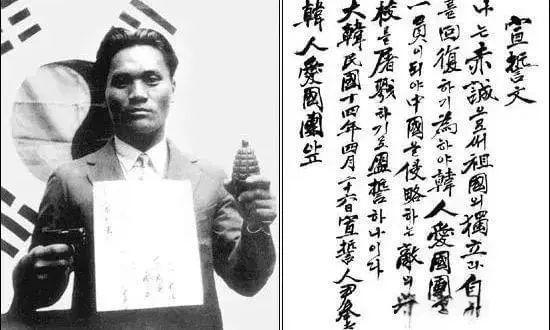 宣誓文
나는 赤誠으로써 祖國의 獨立과 自
를 回復하기 爲하야 韓人愛國團의
一員이 되야 中國을 侵略하는 敵의 將
校를 屠戮하기로 盟誓하나이다
大韓民國十四年四月二十六日 宣誓人 尹奉
韓人愛國團앞